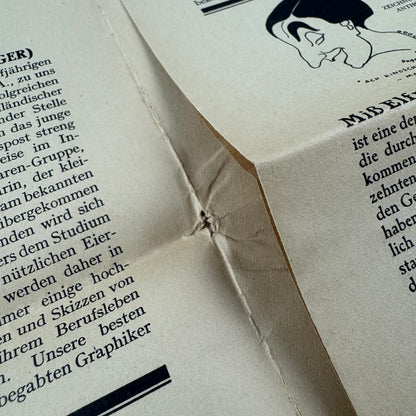 GER)
fjährigen
A., zu uns
folgreichen
ländischer
nder Stelle
n das junge
spost streng
weise im In-
aren-Gruppe,
rin, der klei-
am bekannten
übergekommen
nden wird sich
ers dem Studium
nützlichen Eier-
werden daher in
mer einige hoch-
en und Skizzen von
ihrem Berufsleben
n. Unsere besten
begabten Graphiker
ZEICH
"ACH KINDSCH
ist eine der
die durch
kommen
zehnten
den Ge
haber
lich
sta
de